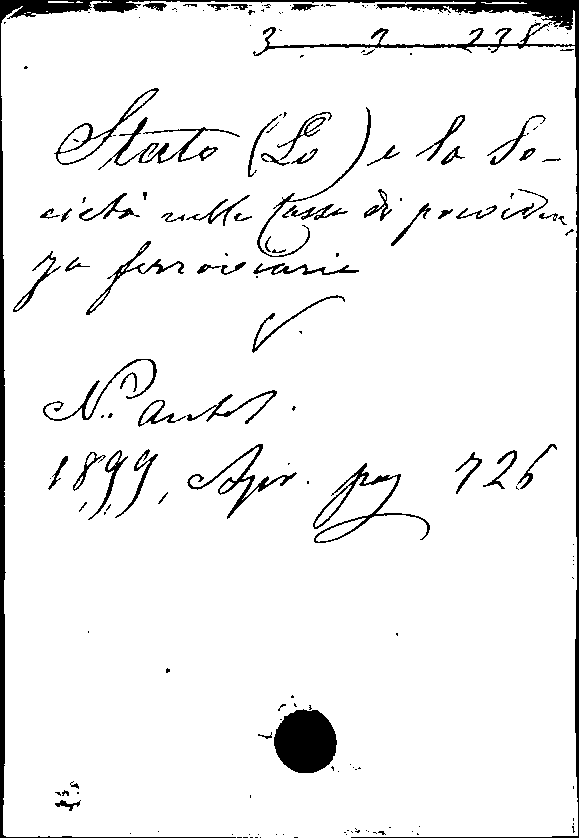 3 3 238
Stato (Lo) e la So-
cietà nelle Casse di previden,
za ferroviarie
V.
N.a antol.
1899, Apr. pag 726